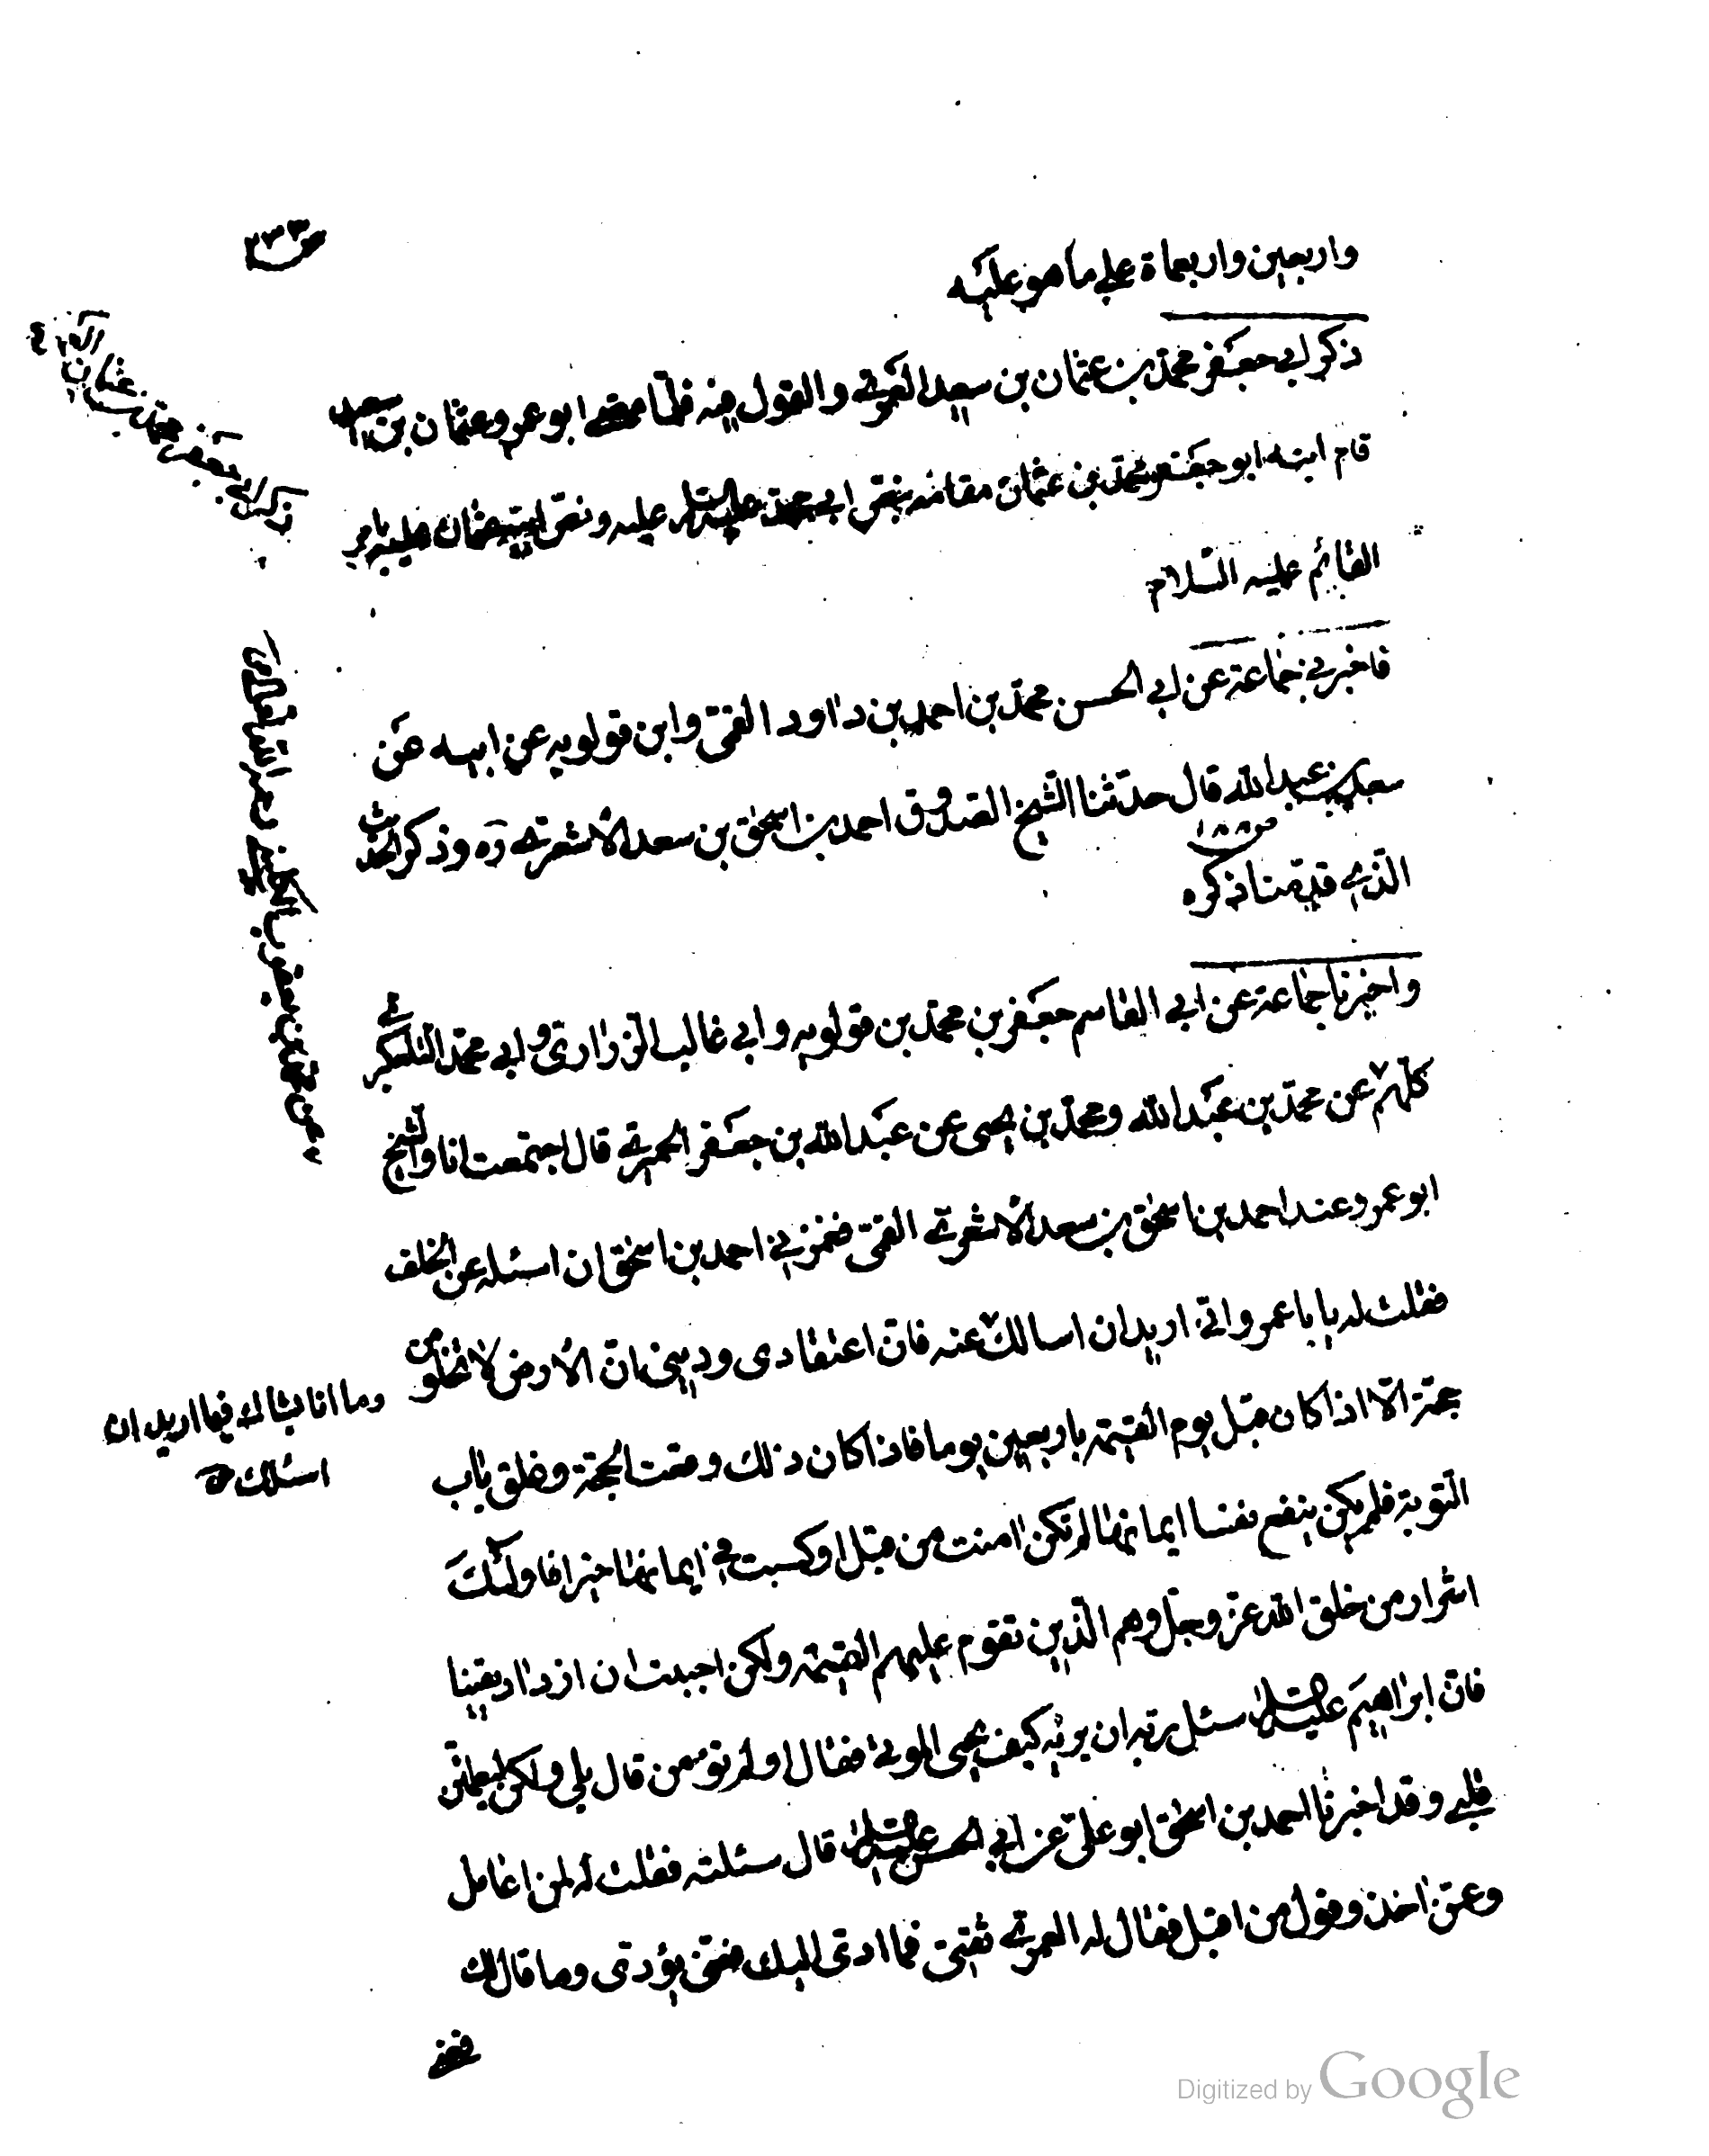 واربعين واربعماة على ما هو عليه
ذكر ابي جعفر محمد بن عثمان بن سعيد العمري والقول فيه فلما مضى ابو عمرو عثمان بن سعيد
قام ابنه ابو جعفر محمد بن عثمان مقامه بنص ابي محمد عليه ونص ابيه عثمان عليه بامر
القائم عليه السلام
فاخبرني جماعة عن ابي الحسن محمد بن احمد بن داود القمي وابن قولويه عن ابيه عن
سعد بن عبد الله قال حدثنا الشيخ الصدوق احمد بن اسحق بن سعد الاشعري ره وذكر الحديث
الذي قدمنا ذكره
واخبرنا جماعة عن ابي القاسم جعفر بن محمد بن قولويه وابي غالب الزراري وابي محمد التلعكبري
كلهم عن محمد بن عبد الله ومحمد بن يحيى عن عبد الله بن جعفر الحميري قال اجتمعت انا والشيخ
ابو عمرو عند احمد بن اسحق بن سعد الاشعري القمي فغمزني احمد بن اسحق ان اسئله عن الخلف
فقلت له يا با عمرو اني اريد ان اسالك عنه فان اعتقادى وديني ان الارض لا تخلو من
وما انا بشاك فيما اريد ان
اسئلك
حجة الا اذا كان قبل يوم القيمة باربعين يوما فاذا كان ذلك وقعت الحجة وغلق باب
التوبة فلم يكن ينفع نفسا ايمانها لم تكن امنت من قبل او كسبت في ايمانها خيرا فاولئك
اشرار من خلق الله عز وجل وهم الذين تقوم عليهم القيمة ولكن احببت ان ازداد يقينا
فان ابراهيم عليه السلام سئل ربه ان يريه كيف يحيى الموتى فقال اولم تؤمن قال بلى ولكن ليطمئن
قلبي وقد اخبرنا احمد بن اسحق ابو علي عن ابي الحسن عليه السلام قال سئلته فقلت له لمن اعامل
وعمن اخذ وقول من اقبل فقال له العمري ثقتي فما ادى اليك فعني يؤدى وما قال لك
فعني
Digitized by Google